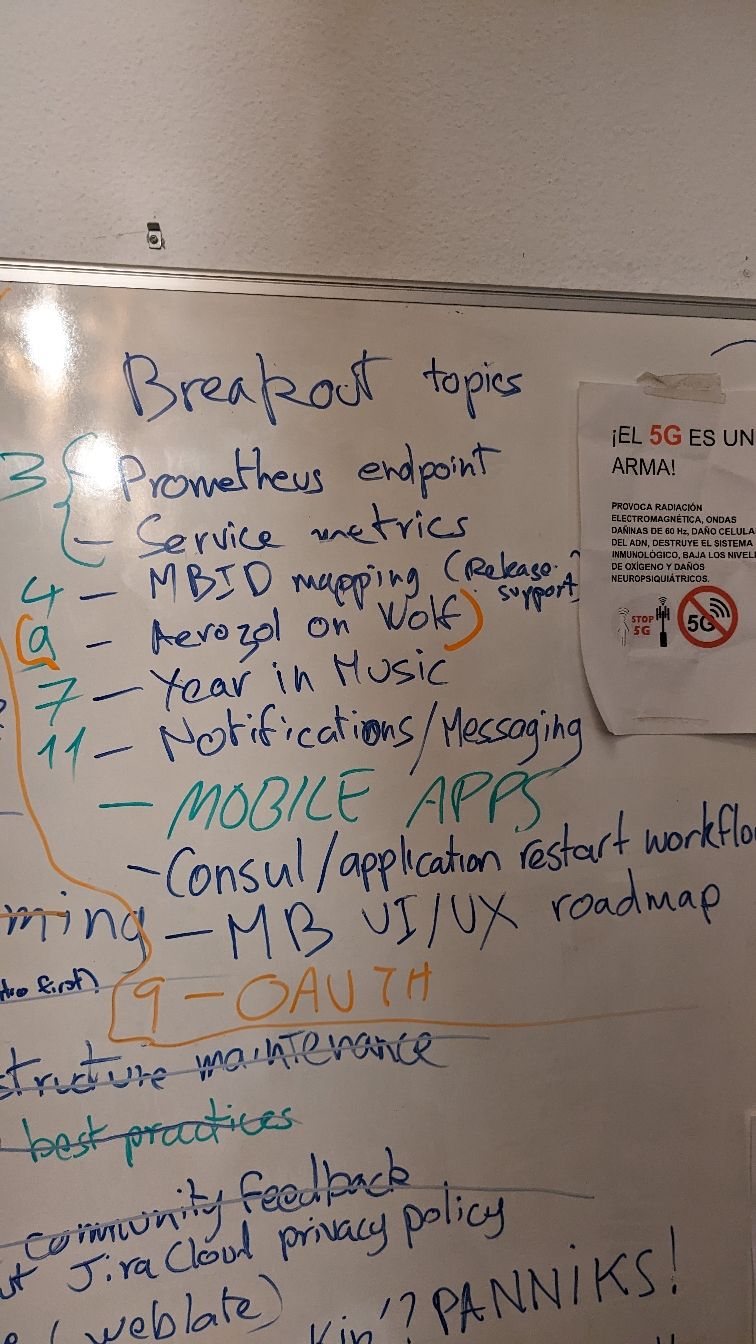 Breakout topics
3 { Prometheus endpoint
- Service metrics
4 - MBID mapping (Release support)
9 - Aerozol on Wolf)
7 - Year in Music
11 - Notifications/Messaging
- MOBILE APPS
- Consul/application restart workflo
ming - MB UI/UX roadmap
first)
9 - OAUTH
structure maintenance
best practices
community feedback
ut Jira Cloud privacy policy
(weblate)
kin'? PANNiKS!
¡EL 5G ES UN
ARMA!
PROVOCA RADIACIÓN
ELECTROMAGNÉTICA, ONDAS
DAÑINAS DE 60 Hz, DAÑO CELULA
DEL ADN, DESTRUYE EL SISTEMA
INMUNOLÓGICO, BAJA LOS NIVEL
DE OXÍGENO Y DAÑOS
NEUROPSIQUIÁTRICOS.
STOP
5G
5G